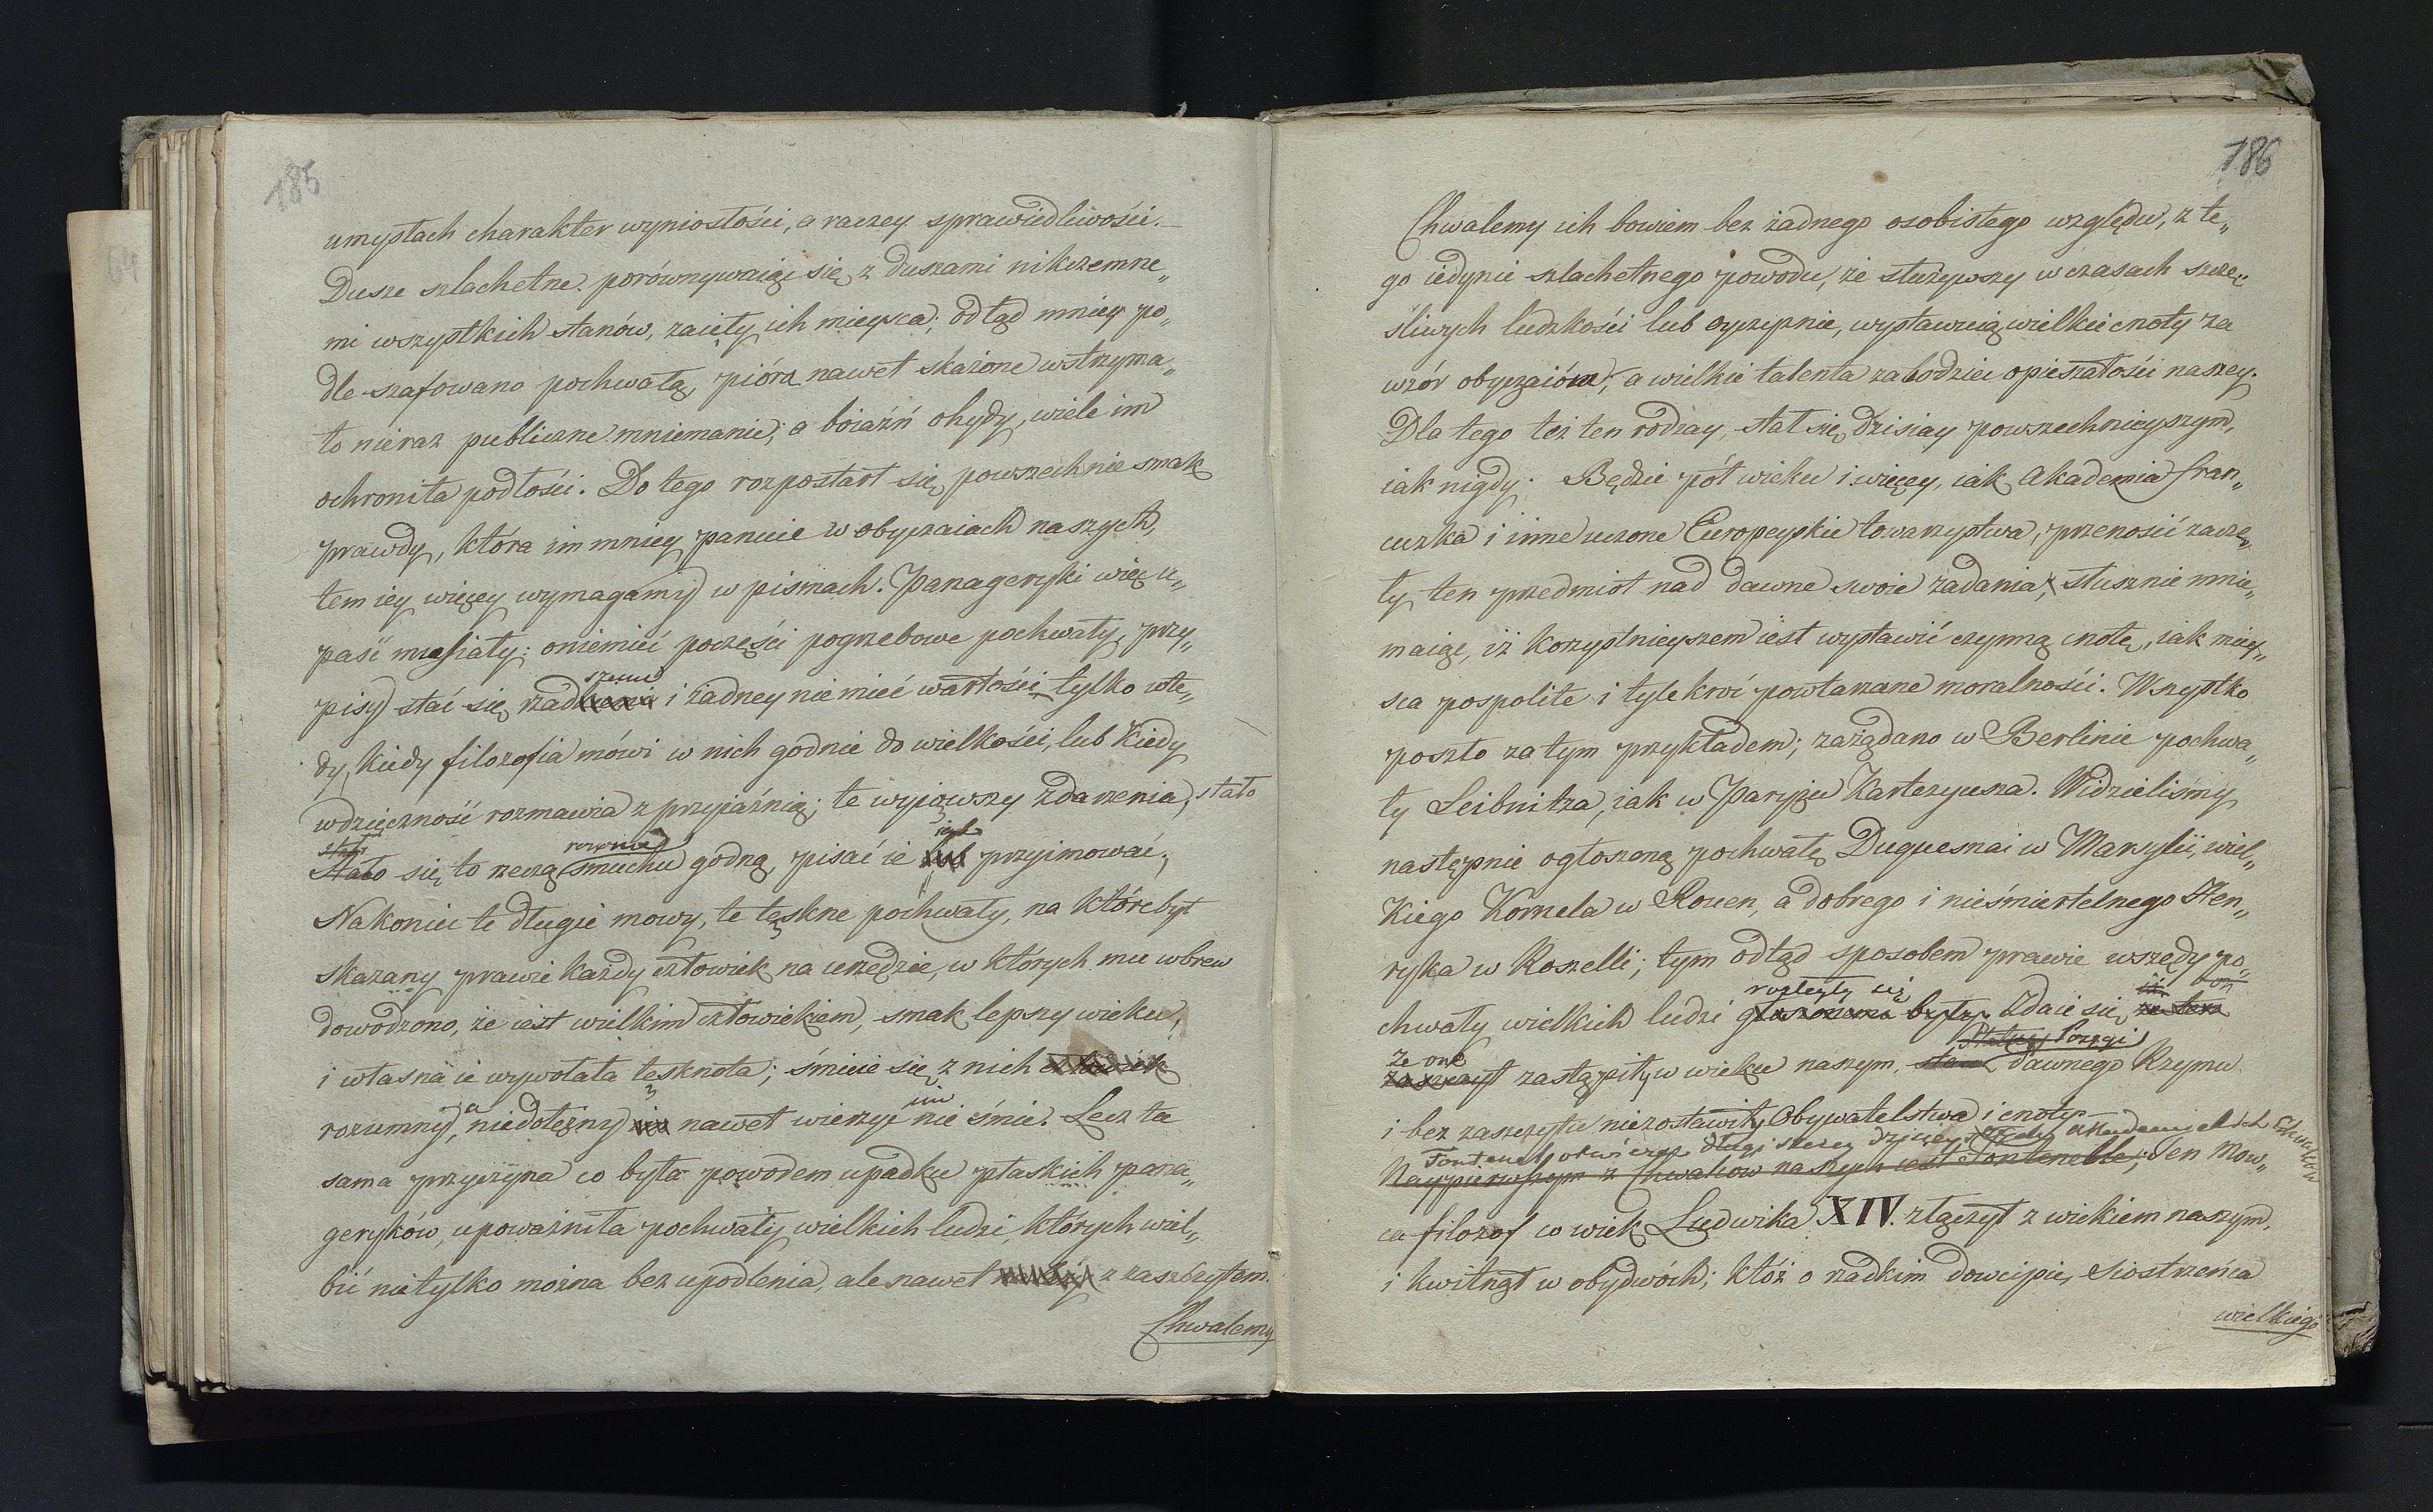 185
umysłach charakter wyniosłości, a raczey sprawiedliwości.
Dusze szlachetne porównywaiąc się z duszami nikczemne„
mi wszystkich stanów, zaięły ich mieysca; odtąd mniey po„
dle szafowano pochwałą, pióra nawet skażone wstrzyma„
ło nieraz publiczne mniemanie; a boiaźń ohydy, wiele im
ochroniła podłości. Do tego rozpostarł się powszechnie smak
prawdy, która im mniey panuie w obyczaiach naszych,
tem iey więcey wymagamy w pismach. Panageryki więc u„
paść musiały: oniemieć poczęści pogrzebowe pochwały, przy„
szemi
pisy stać się rzad i żadney niemieć wartości tylko wte„
dy, kiedy filozofia mówi w nich godnie do wielkości, lub kiedy
wdzięczność rozmawia z przyiaźnią; te wyiąwszy zdarzenia, stało
stało się to rzeczą smiechu godną, pisać ie lub przyimować;
Nakoniec te długie mowy, te tęskne pochwały, na którebył
skazany prawie każdy człowiek na urzędzie, w których mu wbrew
dowodzono, że iest wielkim człowiekiem, smak lepszy wieku,
i własna ie wywołała tesknota; śmieie się z nich człowiek
rozumny, a niedołężny nawet wierzyć im nie śmie. Lecz ta
sama przyczyna co była powodem upadku płaskich pana„
geryków, upoważniła pochwały wielkich ludzi, których wiel„
bić nietylko można bez upodlenia, ale nawet z zaszczytem.
Chwalemy
186
Chwalemy ich bowiem bez żadnego osobistego względu, z te„
go iedynie szlachetnego powodu, że służywszy w czasach szczę„
śliwych ludzkości lub oyczyznie, wystawuią wielkie cnoty za
wzór obyczaiów, a wielkie talenta za bodziec opieszałości naszey.
Dla tego też ten rodzay, stał się dzisiay powszechnieyszym,
iak nigdy. Będzie pół wieku i więcey, iak Akademia fran„
cuzka i inne uczone Europeyskie towarzystwa, przenosić zaczę„
ły ten przedmiot nad dawne swoie zadania, słusznie mnie„
maiąc, iż korzystnieyszem iest wystawić czynną cnotę, iak miey„
sca pospolite i tylekroć powtarzane moralności. Wszystko
poszło za tym przykładem; zażądano w Berlinie pochwa„
ły Leibnitza, iak w Paryżu Kartezyusza. Widzieliśmy
następnie ogłoszoną pochwałę Duguesnai w Marsylii, wiel„
kiego Kornela w Rouen, a dobrego i nieśmiertelnego Hen„
ryka w Roszelli; tym odtąd sposobem prawie wszędy po„
rozległy się
chwały wielkich ludzi głoszone były. Zdaie się, że ten
Statuy Posągi
że one
zaszczyt zastąpiły w wieku naszym, dawnego Rzymu
i bez zaszczytu niezostawiły Obywatelstwa i cnoty.
Fontenel otwiera długi szereg Akademickich Chwalców
Naypierwszym z Chwalców naszych iest Fontenelle; Ten Mow„
ca filozof co wiek Ludwika XIV. złączył z wiekiem naszym,
i kwitnął w obydwóch; któż o rzadkim dowcipie, Siostrzeńca
wielkiego